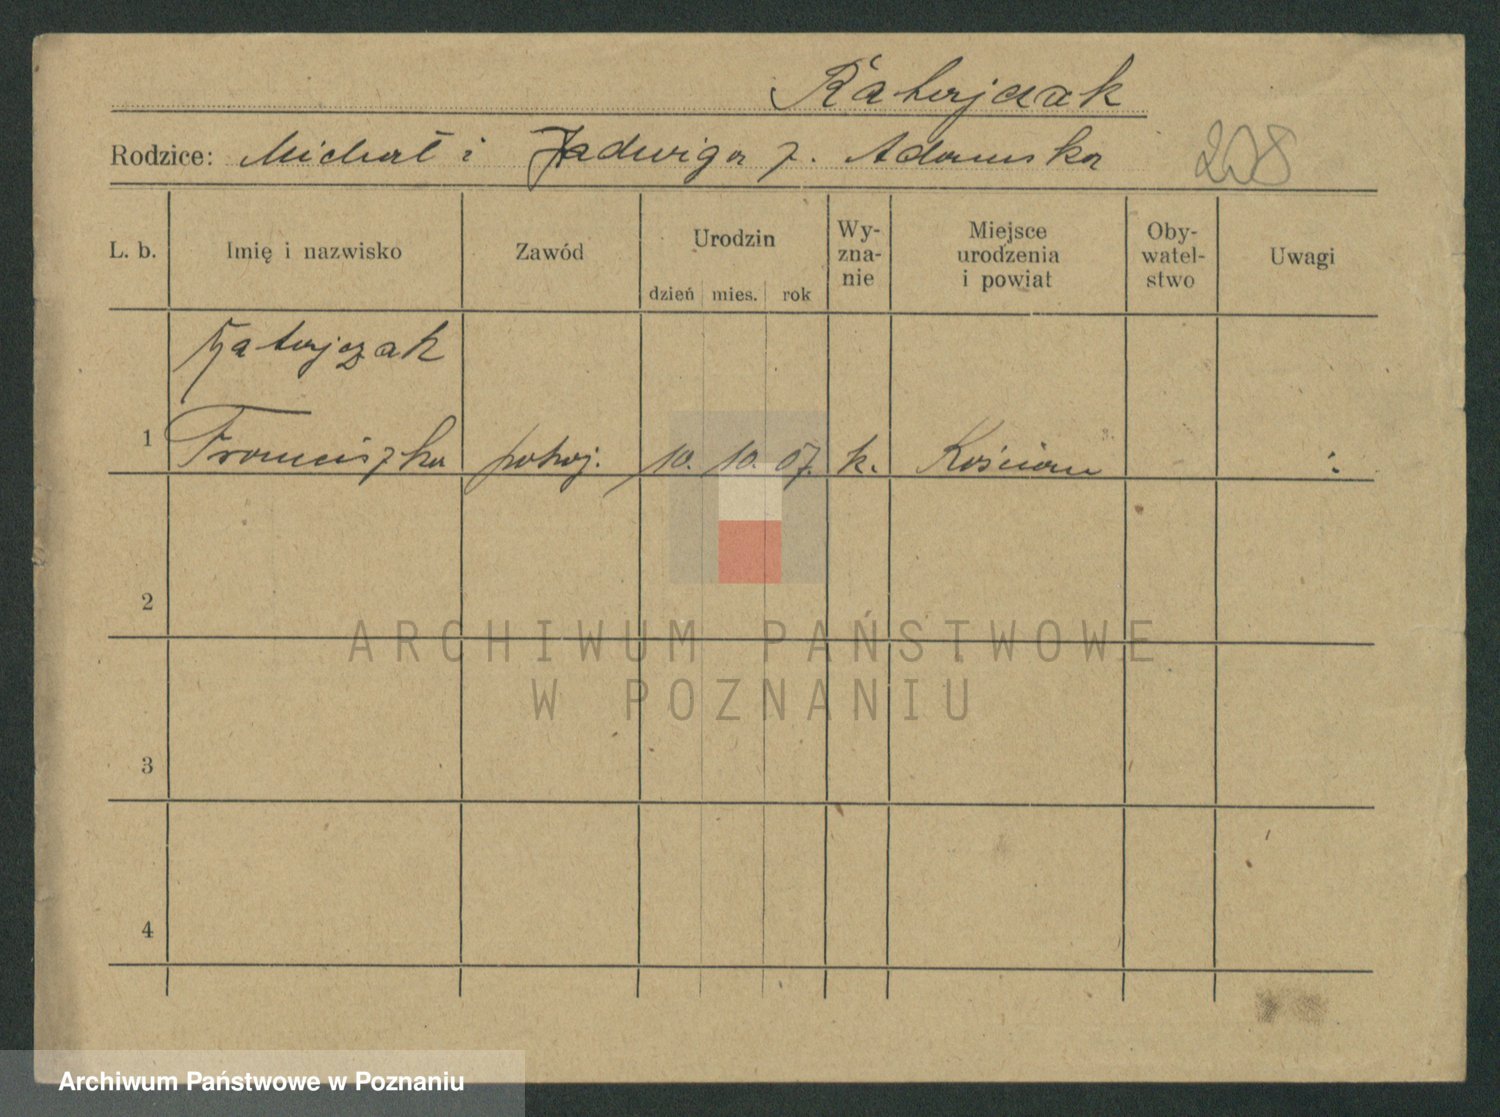 Ratajczak
Rodzice: Michał i Jadwiga z. Adamska
208
L. b. Imię i nazwisko Zawód Urodzin Wy-zna-nie Miejsce urodzenia i powiat Oby-watel-stwo Uwagi
dzień mies. rok
Ratajczak
1 Franciszka pokoj. 10. 10. 07. k. Kościan
2
ARCHIWUM PAŃSTWOWE
W POZNANIU
3
4
Archiwum Państwowe w Poznaniu